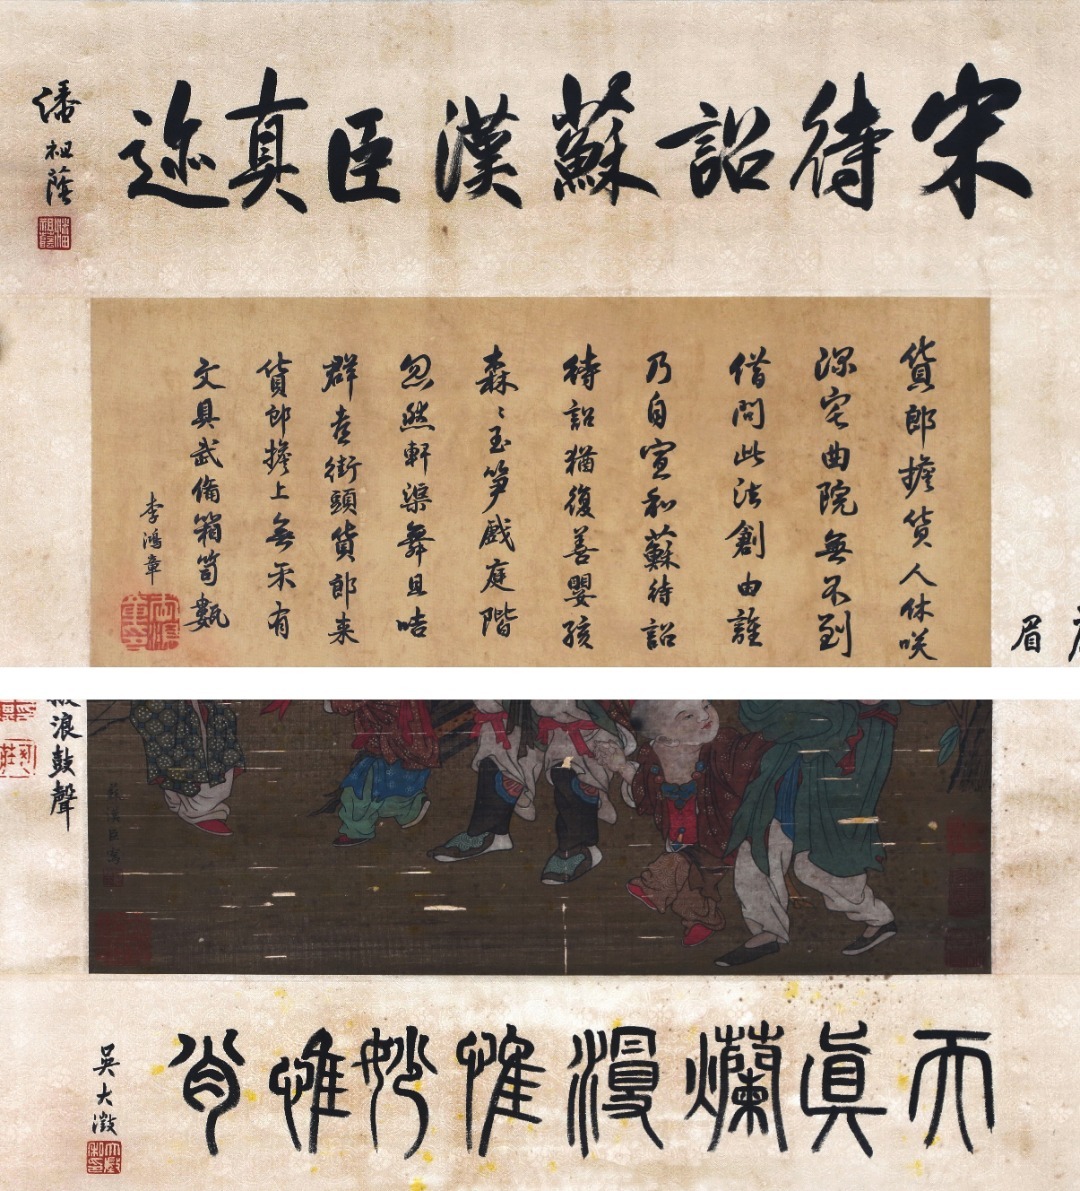 宋待詔蘇漢臣真迹
潘祖蔭
貨郎擔貨人休咲
深宅曲院無不到
借問此法創由誰
乃自宣和蘇待詔
待詔猶復善嬰孩
森〻玉笋戲庭階
忽然軒渠舞且咭
群走街頭貨郎来
貨郎擔上無不有
文具武備箱笥
李鴻章
眉
浪鼓聲
蘇漢臣
天真爛漫惟妙惟肖
吳大澂